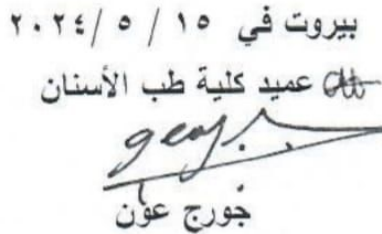 بيروت في ١٥ / ٥ / ٢٠٢٤
عميد كلية طب الأسنان
جورج عون